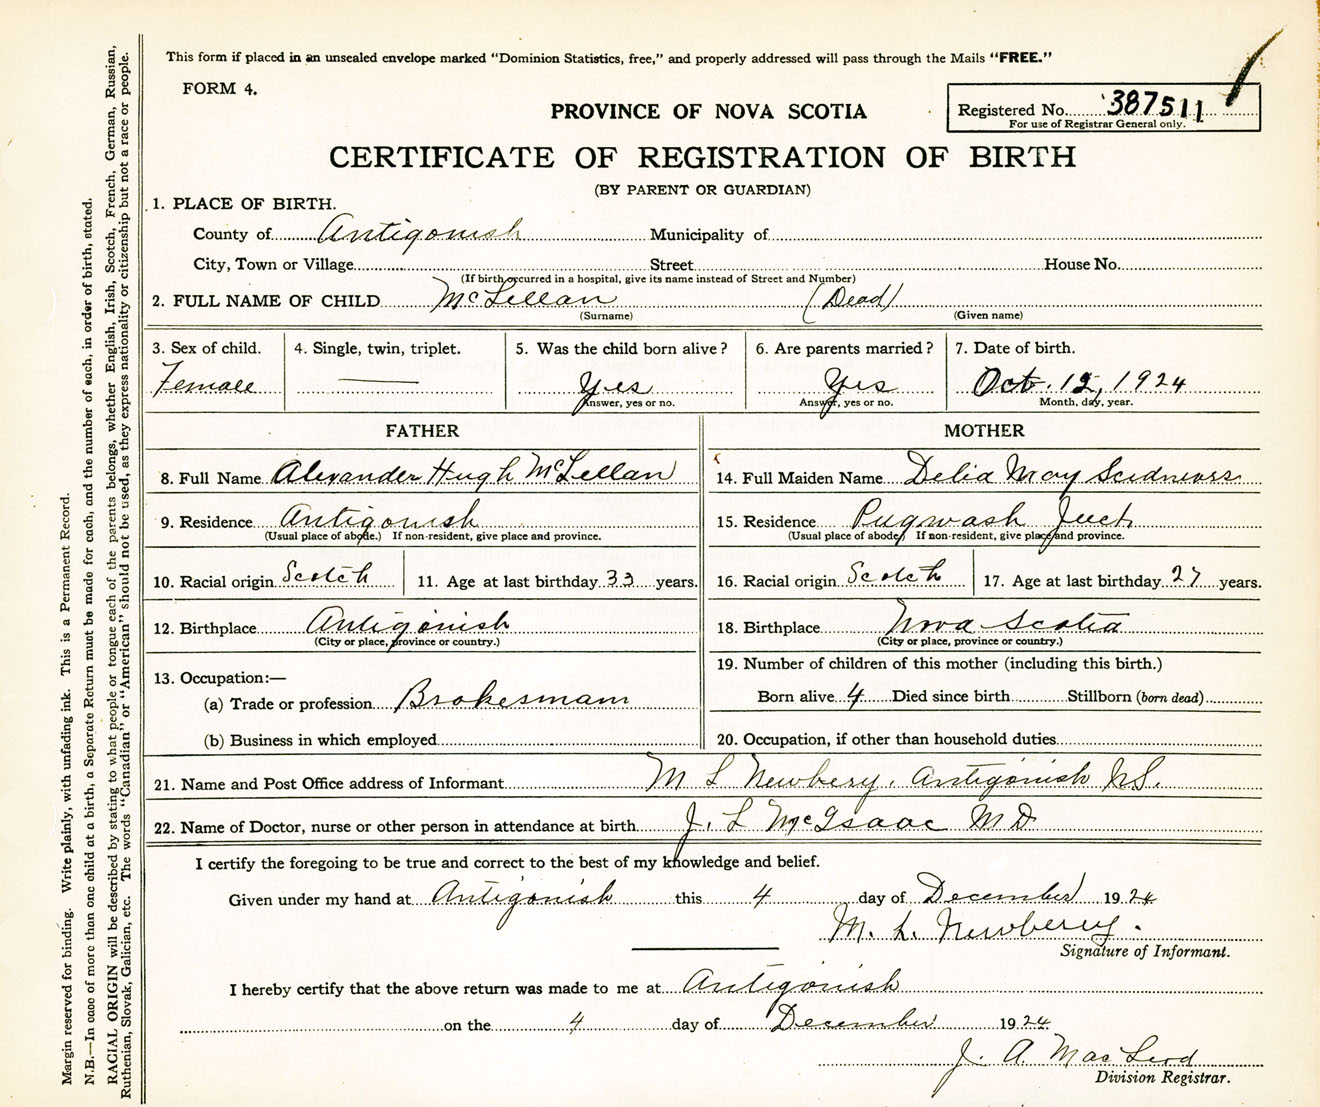 This form if placed in an unsealed envelope marked “Dominion Statistics, free,” and properly addressed will pass through the Mails “FREE.”
FORM 4.
PROVINCE OF NOVA SCOTIA
Registered No. 387511
For use of Registrar General only.
CERTIFICATE OF REGISTRATION OF BIRTH
(BY PARENT OR GUARDIAN)
1. PLACE OF BIRTH.
County of Antigonish Municipality of
City, Town or Village Street House No.
(If birth occurred in a hospital, give its name instead of Street and Number)
2. FULL NAME OF CHILD McLellan (Dead)
(Surname) (Given name)
3. Sex of child. 4. Single, twin, triplet. 5. Was the child born alive? 6. Are parents married? 7. Date of birth.
Female — Yes Yes Oct. 12, 1924
Answer, yes or no. Answer, yes or no. Month, day, year.
FATHER MOTHER
8. Full Name Alexander Hugh McLellan 14. Full Maiden Name Delia May
9. Residence Antigonish 15. Residence Pugwash Junct
(Usual place of abode.) If non-resident, give place and province. (Usual place of abode) If non-resident, give place and province.
10. Racial origin Scotch 11. Age at last birthday 33 years. 16. Racial origin Scotch 17. Age at last birthday 27 years.
12. Birthplace Antigonish 18. Birthplace Nova Scotia
(City or place, province or country.) (City or place, province or country.)
13. Occupation:— 19. Number of children of this mother (including this birth.)
(a) Trade or profession Brakesmam Born alive 4 Died since birth Stillborn (born dead)
(b) Business in which employed 20. Occupation, if other than household duties
21. Name and Post Office address of Informant M L Newbery, Antigonish N.S.
22. Name of Doctor, nurse or other person in attendance at birth J. L McIsaac M D
I certify the foregoing to be true and correct to the best of my knowledge and belief.
Given under my hand at Antigonish this 4 day of December 1924
M. L. Newbery.
Signature of Informant.
I hereby certify that the above return was made to me at Antigonish
on the 4 day of December 1924
J. A. MacLeod
Division Registrar.
Margin reserved for binding. Write plainly, with unfading ink. This is a Permanent Record.
N.B.—In case of more than one child at a birth, a Separate Return must be made for each, and the number of each, in order of birth, stated.
RACIAL ORIGIN will be described by stating to what people or tongue each of the parents belongs, whether English, Irish, Scotch, French, German, Russian,
Ruthenian, Slovak, Galician, etc. The words “Canadian” or “American” should not be used, as they express nationality or citizenship but not a race or people.